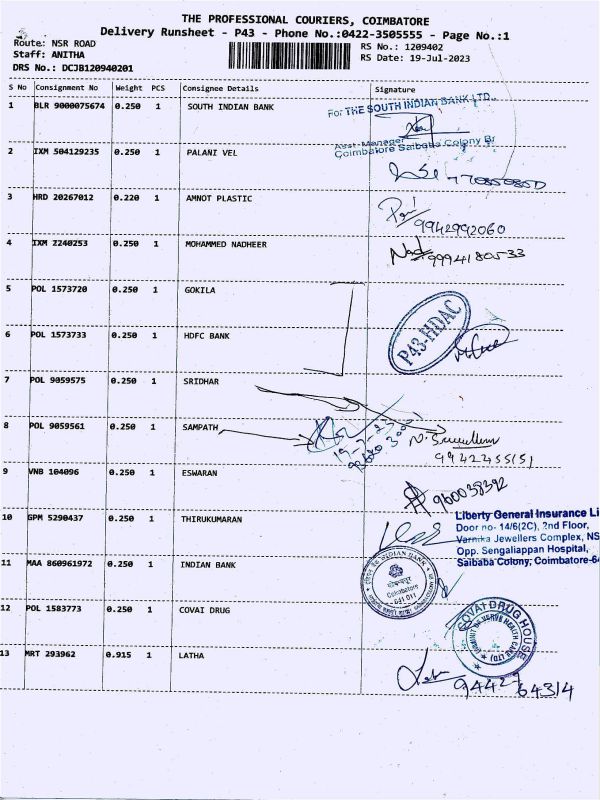 THE PROFESSIONAL COURIERS, COIMBATORE
Delivery Runsheet - P43 - Phone No.:0422-3505555 - Page No.:1
Route: NSR ROAD
RS No.: 1209402
Staff: ANITHA
RS Date: 19-Jul-2023
DRS No.: DCJB120940201
S No Consignment No Weight PCS Consignee Details Signature
1 BLR 9000075674 0.250 1 SOUTH INDIAN BANK
For THE SOUTH INDIAN BANK LTD.,
Asst. Manager
Coimbatore Saibaba Colony Br
2 IXM 504129235 0.250 1 PALANI VEL
3 HRD 20267012 0.220 1 AMNOT PLASTIC
9942992060
4 IXM 2240253 0.250 1 MOHAMMED NADHEER
9994180533
5 POL 1573720 0.250 1 GOKILA
6 POL 1573733 0.250 1 HDFC BANK
P43-HDAC
7 POL 9059575 0.250 1 SRIDHAR
8 POL 9059561 0.250 1 SAMPATH
19-7-23
9942455151
9 VNB 104096 0.250 1 ESWARAN
960038392
10 GPM 5290437 0.250 1 THIRUKUMARAN
Liberty General Insurance Li
Door no- 14/6(2C), 2nd Floor,
Varnika Jewellers Complex, NS
Opp. Sengaliappan Hospital,
Saibaba Colony, Coimbatore-64
11 MAA 860961972 0.250 1 INDIAN BANK
INDIAN BANK
Coimbatore
641 011
12 POL 1583773 0.250 1 COVAI DRUG
COVAI DRUG HOUSE
13 MRT 293962 0.915 1 LATHA
94427 64314